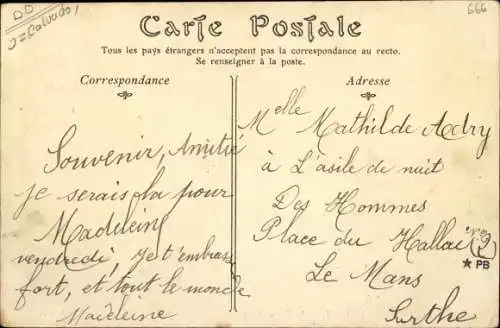 DD
J = Calvados
666
Carte Postale
Tous les pays étrangers n'acceptent pas la correspondance au recto.
Se renseigner à la poste.
Correspondance
Adresse
Souvenir, Amitié
je serais la pour
Madeleine
vendredi, je t'embrasse
fort, et tout le monde
Madeleine
Melle Mathilde Adry
à L'asile de nuit
Des Hommes
Place du Hallai
Le Mans
★ PB
Sarthe